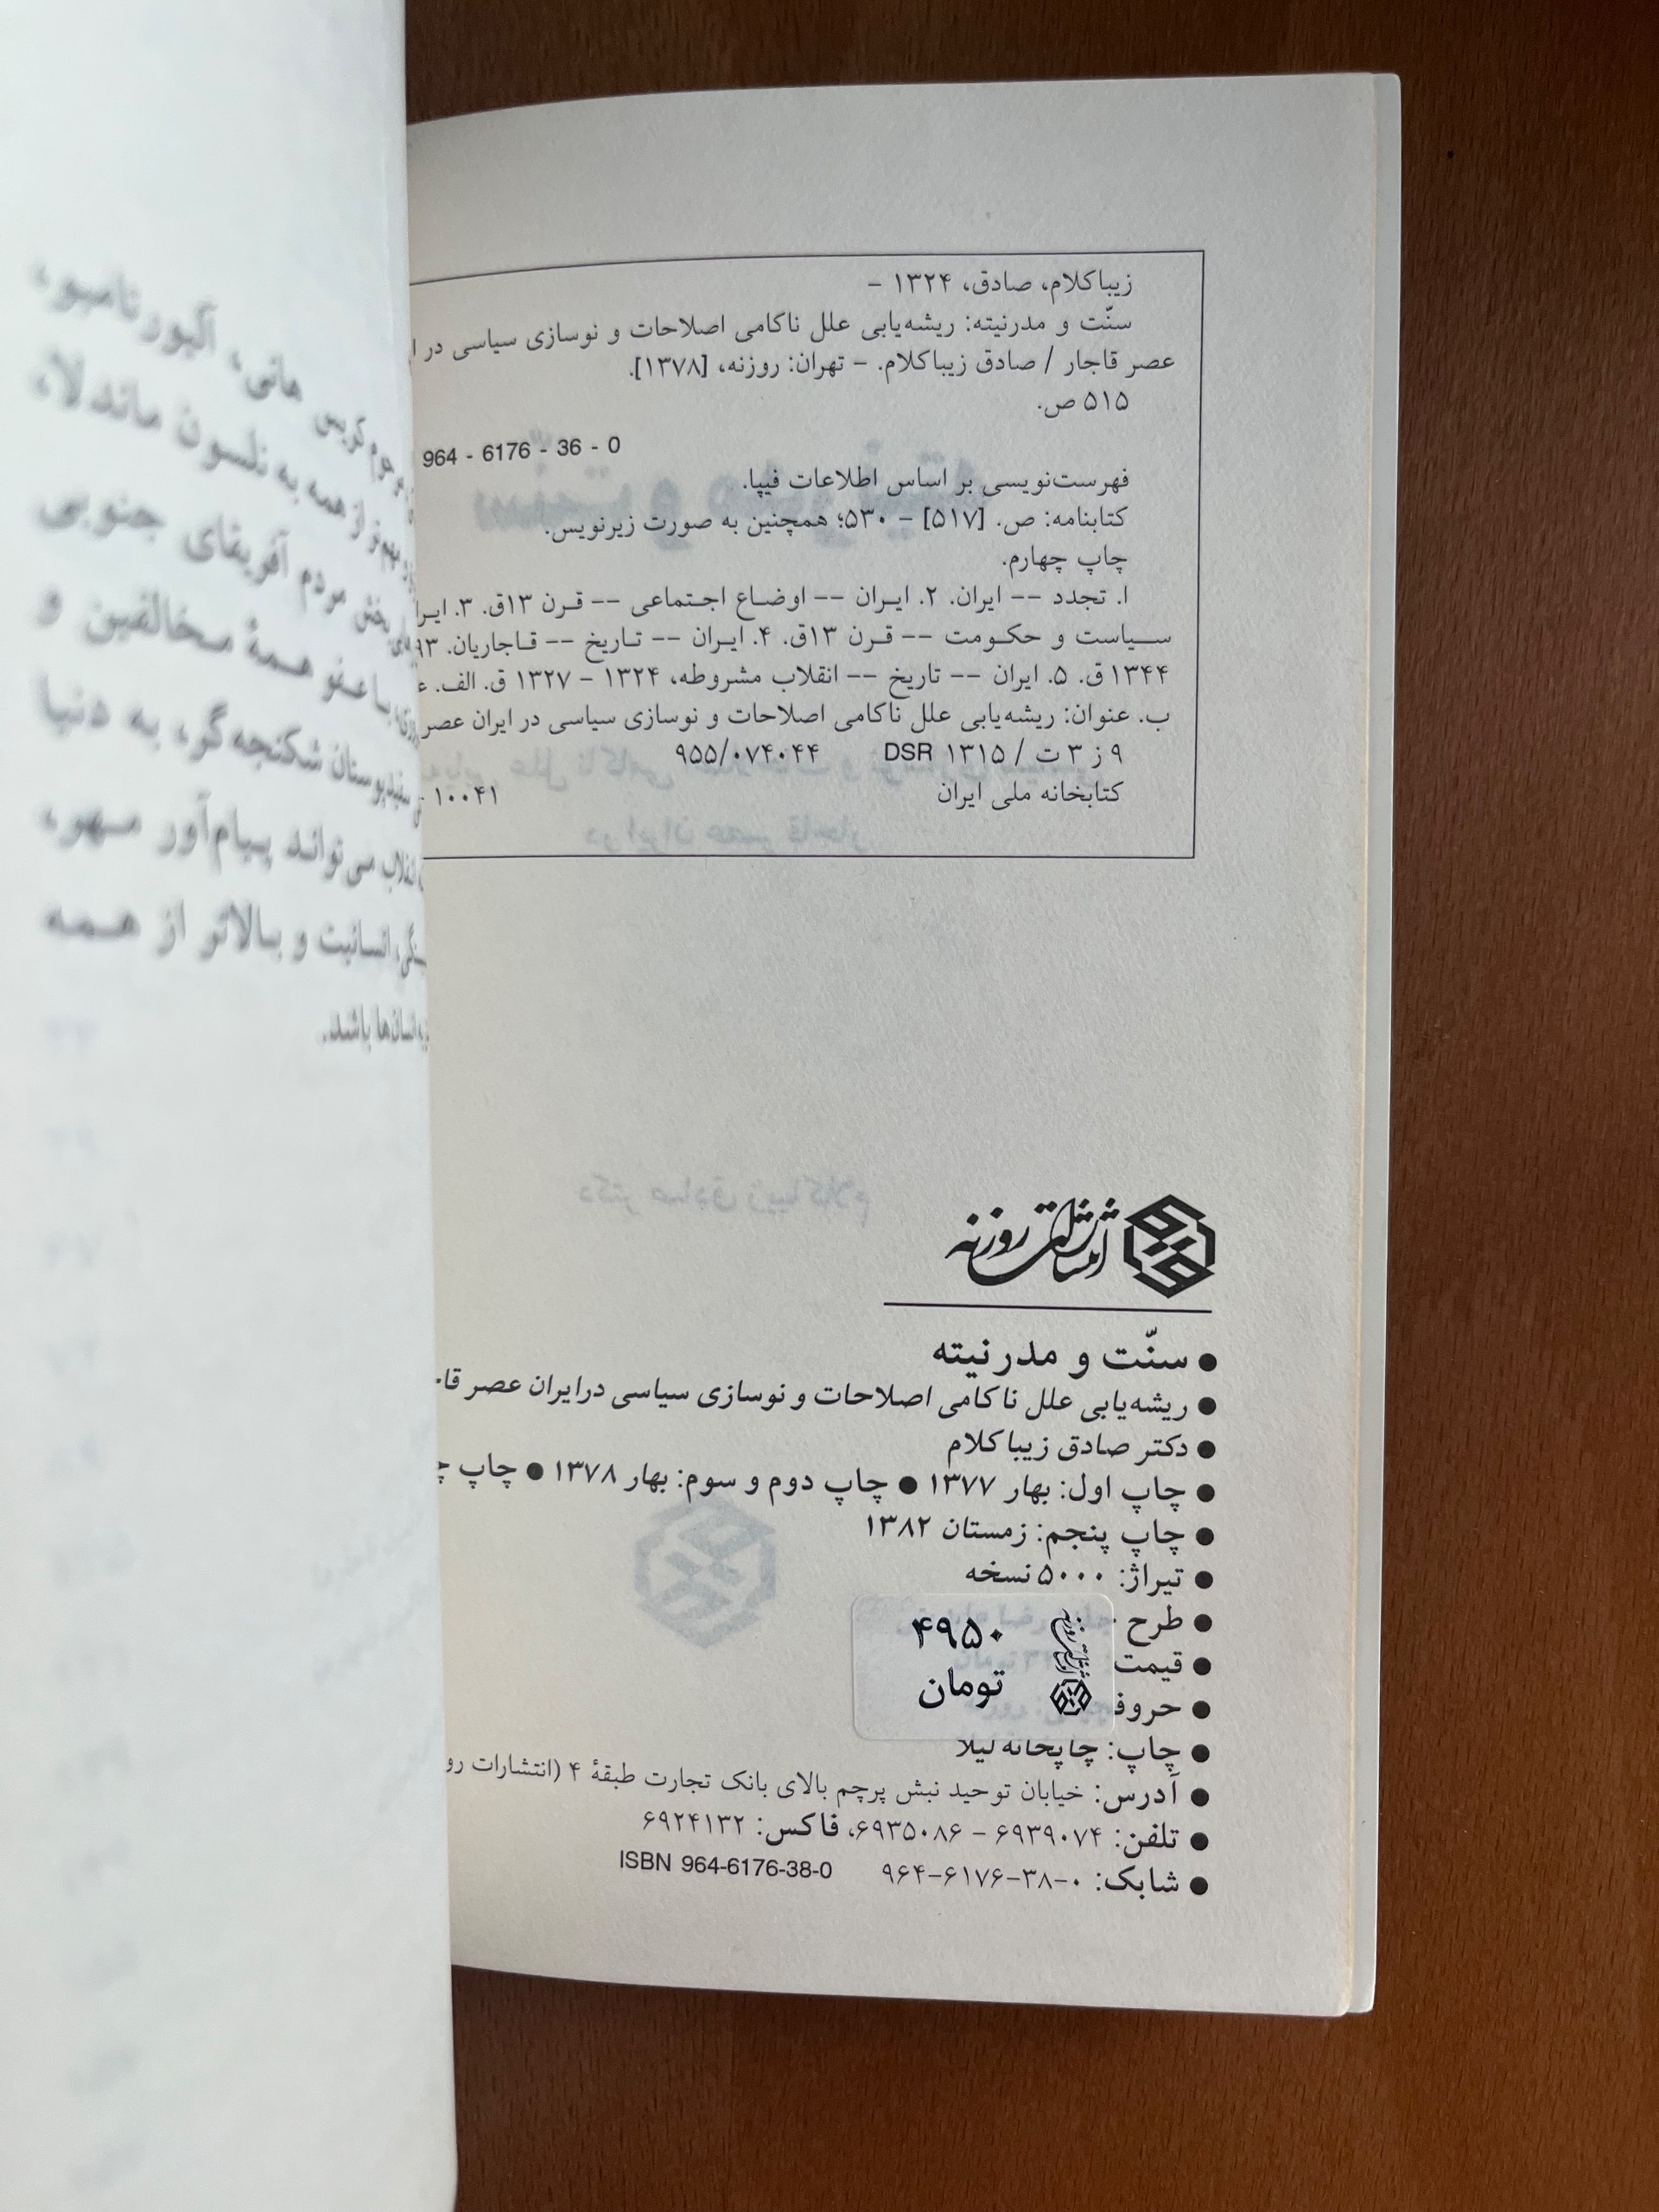 زیباکلام، صادق، ۱۳۲۴ –
سنّت و مدرنیته: ریشه‌یابی علل ناکامی اصلاحات و نوسازی سیاسی در
عصر قاجار / صادق زیباکلام. – تهران: روزنه، [۱۳۷۸].
۵۱۵ ص.
964 - 6176 - 36 - 0
فهرست‌نویسی بر اساس اطلاعات فیپا.
کتابنامه: ص. [۵۱۷] – ۵۳۰؛ همچنین به صورت زیرنویس.
چاپ چهارم.
۱. تجدد -- ایران. ۲. ایران -- اوضاع اجتماعی -- قرن ۱۳ق. ۳.
سیاست و حکومت -- قرن ۱۳ق. ۴. ایران -- تاریخ -- قاجاریان.
۱۳۴۴ ق. ۵. ایران -- تاریخ -- انقلاب مشروطه، ۱۳۲۴ – ۱۳۲۷ ق. الف.
ب. عنوان: ریشه‌یابی علل ناکامی اصلاحات و نوسازی سیاسی در ایران عصر
۹ ز ۳ ت / ۱۳۱۵ DSR ۹۵۵/۰۷۴۰۴۴
کتابخانه ملی ایران ۱۰۰۴۱ -
انتشارات روزنه
● سنّت و مدرنیته
● ریشه‌یابی علل ناکامی اصلاحات و نوسازی سیاسی درایران عصر
● دکتر صادق زیباکلام
● چاپ اول: بهار ۱۳۷۷ ● چاپ دوم و سوم: بهار ۱۳۷۸ ● چاپ
● چاپ پنجم: زمستان ۱۳۸۲
● تیراژ: ۵۰۰۰ نسخه
● طرح
● قیمت
● حروف
۴۹۵۰
تومان
انتشارات روزنه
● چاپ: چاپخانه لیلا
● آدرس: خیابان توحید نبش پرچم بالای بانک تجارت طبقهٔ ۴ (انتشارات
● تلفن: ۶۹۳۹۰۷۴ – ۶۹۳۵۰۸۶، فاکس: ۶۹۲۴۱۳۲
● شابک: ۰-۳۸-۶۱۷۶-۹۶۴ ISBN 964-6176-38-0
هانی، آلبور نامبو،
از همه به نلسون ماندلا،
بخش مردم آفریقای جنوبی
با عفو همهٔ مخالفین و
سفیدپوستان شکنجه‌گر، به دنیا
انقلاب می‌تواند پیام‌آور مهر،
انسانیت و بالاتر از همه
انسان‌ها باشد.